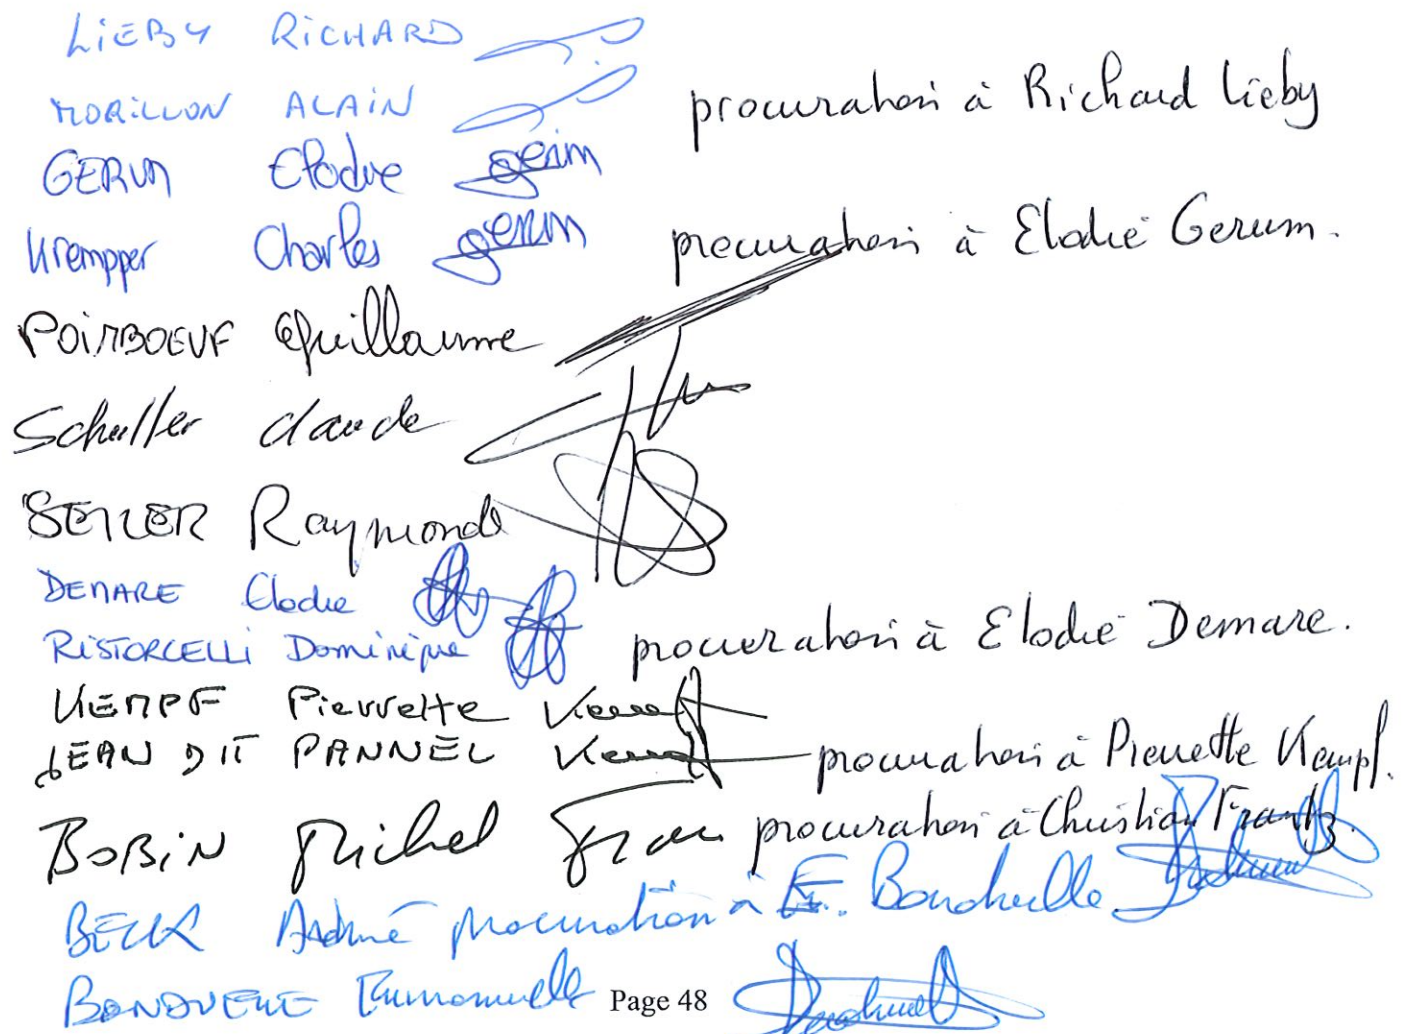 LIEBY RICHARD
MORILLON ALAIN procuration à Richard Lieby
GERUM Elodie gerum
Krempper Charles gerum procuration à Elodie Gerum.
POIRBOEUF Guillaume
Schuller Claude
SEILER Raymonde
DEMARE Elodie
RISTORCELLI Dominique procuration à Elodie Demare.
KEMPF Pierrette Kempf
JEAN DIT PANNEL Kempf procuration à Pierrette Kempf.
BOBIN Michel procuration à Christian Frantz.
BECK André procuration à E. Bonduelle
BONDUELLE Emmanuelle
Page 48